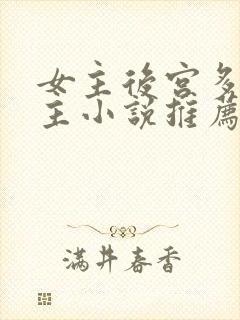 女主後宮多
主小說推薦
滿井春香